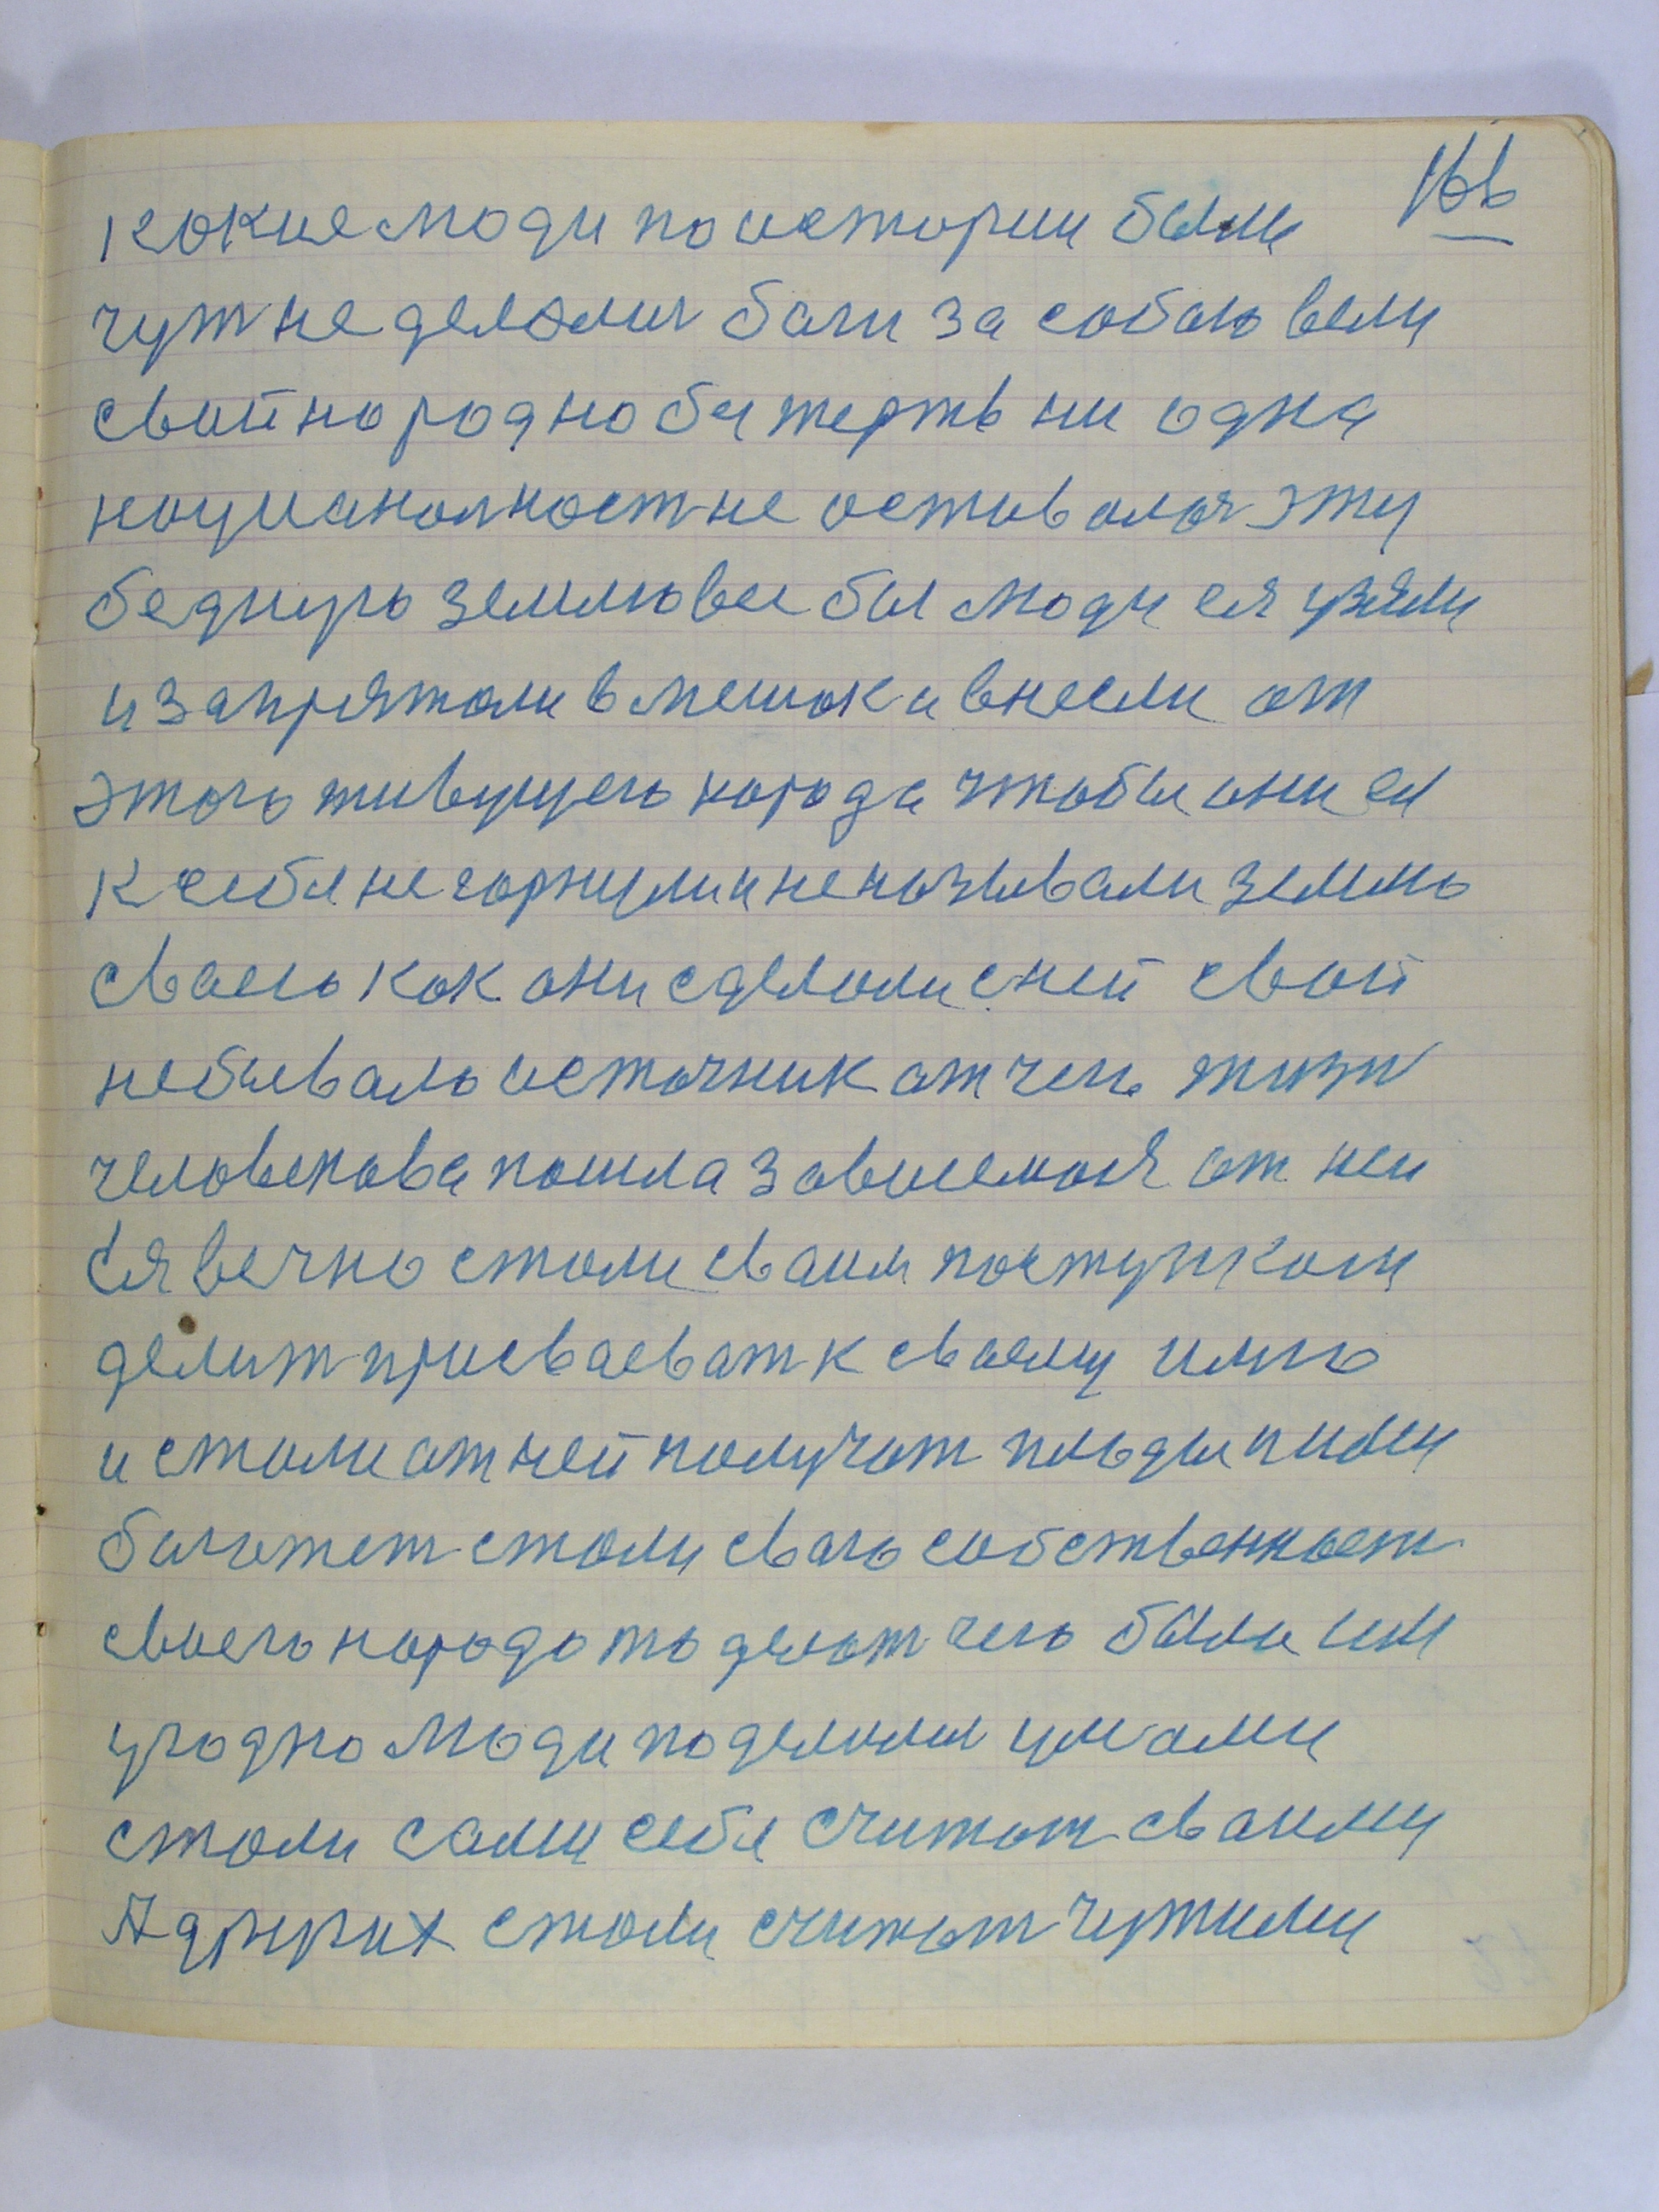 166
какие люди по истории были
чут не делалис баги за собаю вели
свой народ но бы жерть ни одна
нацианалност не оставалася эту
бедную землю все бы люди ея узяли
и запрятали в мешок и внесли от
этого живущего народа чтобы они ея
к себя не горнули и не называли землю
сваею как они сделали с ней свой
небывало источник от чего жизн
человекова пошла зависемося от неи
Ея вечно стали сваим поступком
делит присваеват к сваему имю
и стали от ней получат плоды ими
богатет стали сваю собственност
своего народа то делат чего были им
угодно люди поделилис умами
стали сами себя считат сваими
А других стали считат чужими